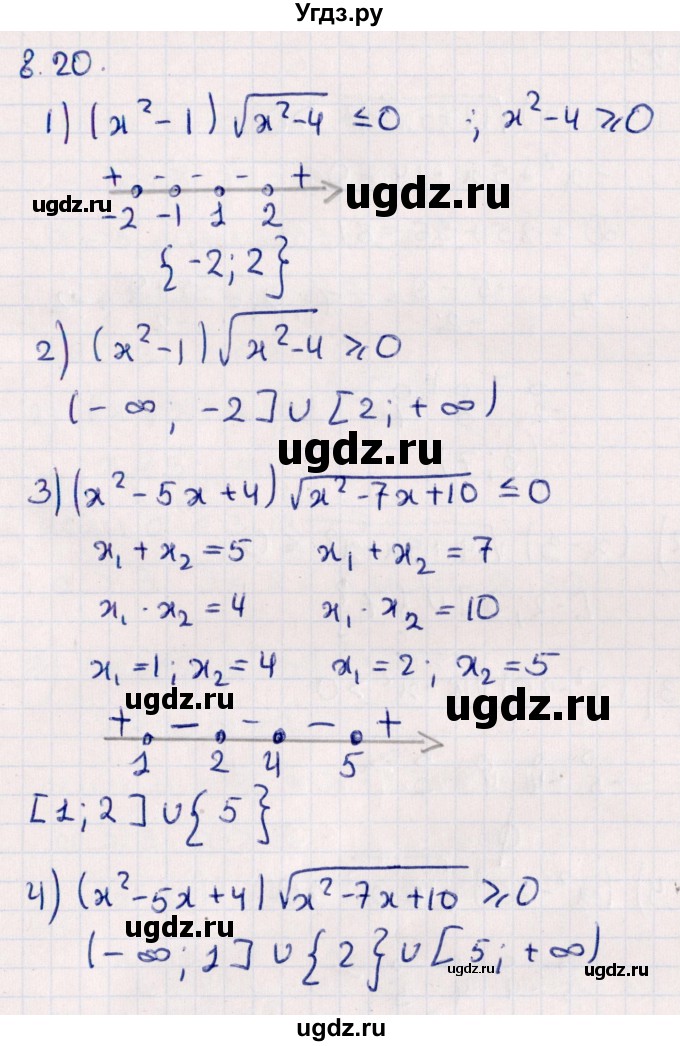 Угдз.ру
8.20.
1) (x²-1)√(x²-4) ≤0 ; x²-4 ⩾0
+ - - - +
-2 -1 1 2
ugdz.ru ugdz.ru
{-2; 2}
2) (x²-1)√(x²-4) ⩾0
(-∞; -2] ∪ [2; +∞)
ugdz.ru
3) (x²-5x+4)√(x²-7x+10) ≤0
x₁+x₂=5 x₁+x₂=7
x₁·x₂=4 x₁·x₂=10
x₁=1; x₂=4 x₁=2; x₂=5
ugdz.ru ugdz.ru
+ - - - +
1 2 4 5
[1; 2] ∪ {5}
ugdz.ru
4) (x²-5x+4)√(x²-7x+10) ⩾0
(-∞; 1] ∪ {2} ∪ [5; +∞)
ugdz.ru ugdz.ru
ugdz.ru